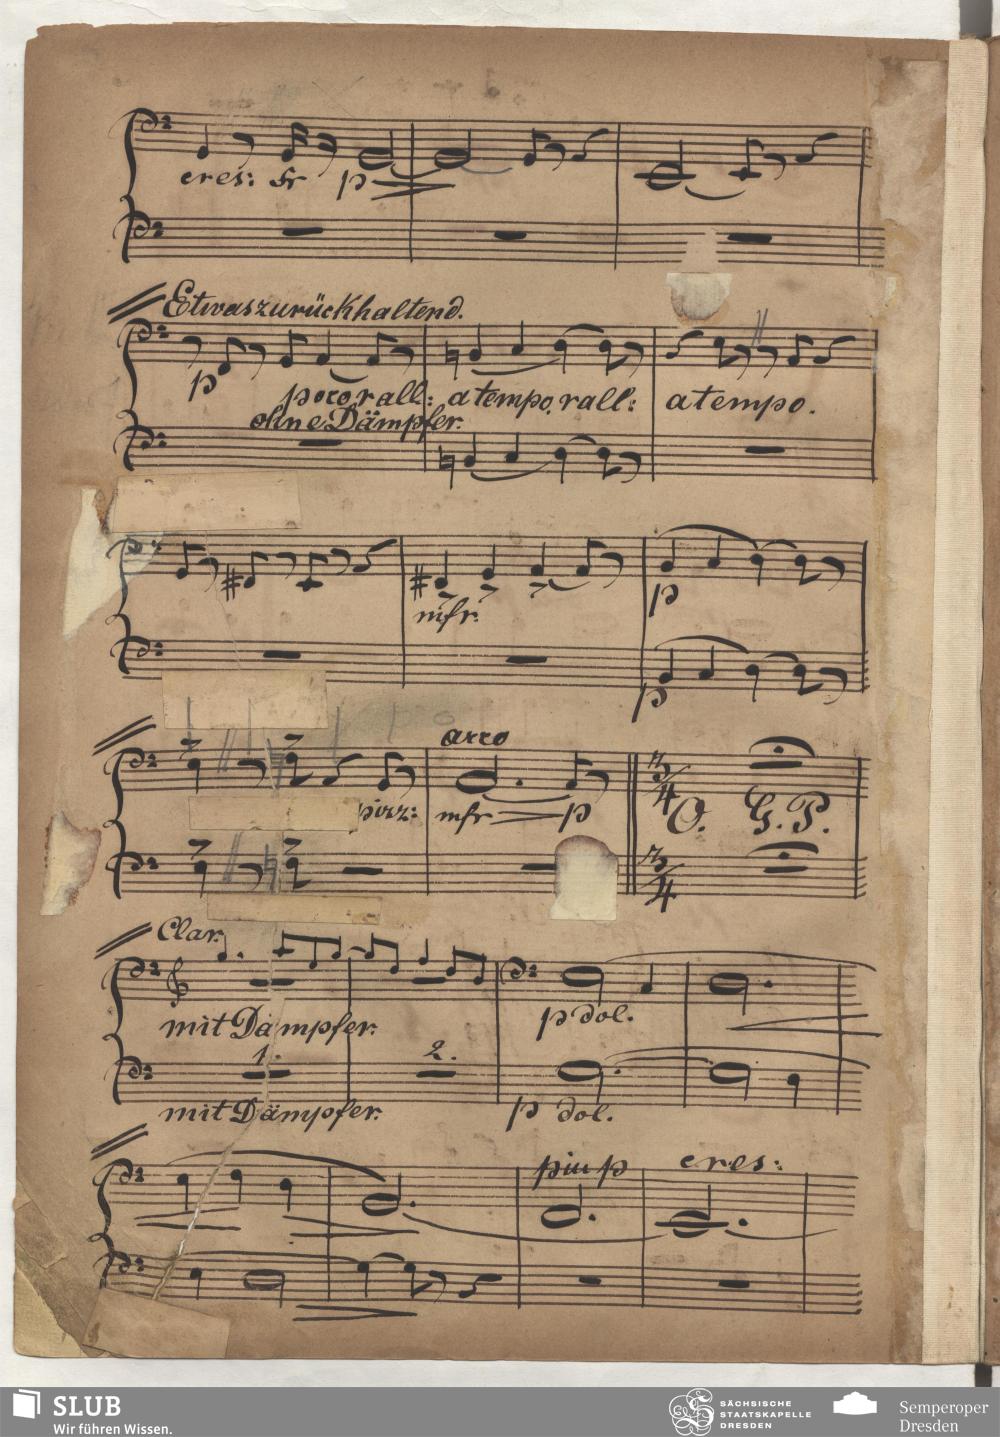 cres: fr p
Etwas zurückhaltend.
p poco rall: a tempo. rall: a tempo.
ohne Dämpfer.
mfr.
p
p
arco
pizz: mfr p
3/4 O. G. P.
3/4
Clar.
mit Dämpfer. p dol.
1. 2.
mit Dämpfer. p dol.
piu p cres:
SLUB
Wir führen Wissen.
SÄCHSISCHE
STAATSKAPELLE
DRESDEN
Semperoper
Dresden